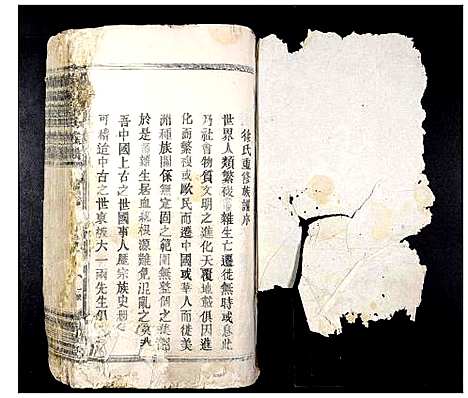 徐氏重修族譜序
世界人類繁複雜生亡遷徙無時或息此
乃社會物質文明之進化天覆地載俱因進
化而繁複或歐民而遷中國或華人而徙美
洲種族關係無定固之範圍無整個之集團
於是雜生居血統根源難免混亂之
吾中國上古之世國事人民宗族史
可稽迨中古之世東大一兩先生